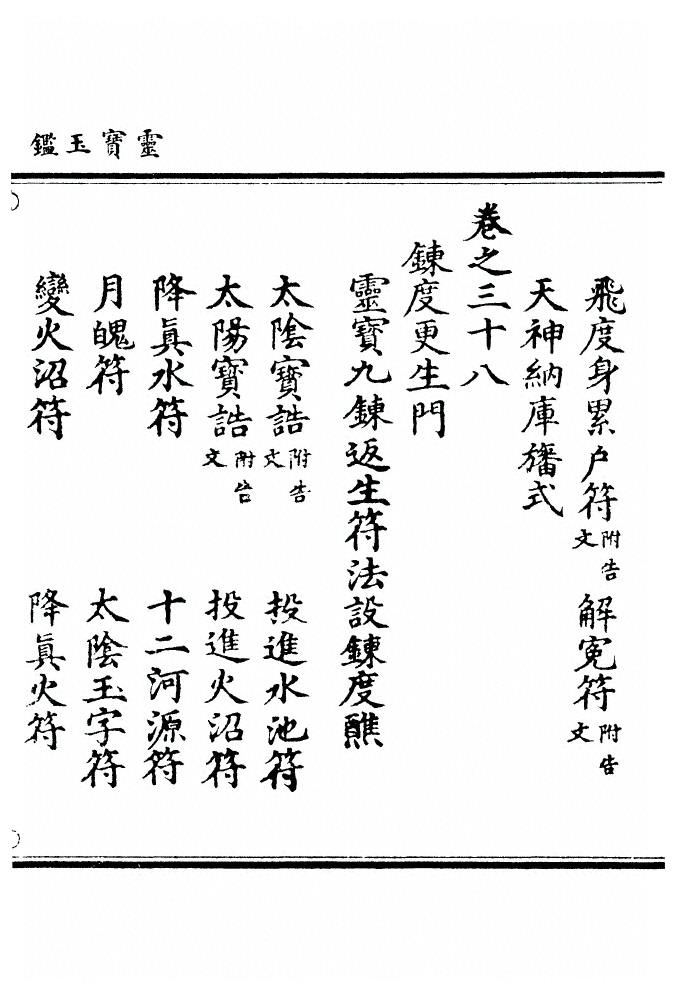 靈寶玉鑑
飛度身累户符附告文 解寃符附告文
天神納庫旛式
卷之三十八
鍊度更生門
靈寶九鍊返生符法設鍊度醮
太陰寶誥附告文 投進水池符
太陽寶誥附告文 投進火沼符
降眞水符 十二河源符
月魄符 太陰玉字符
變火沼符 降眞火符